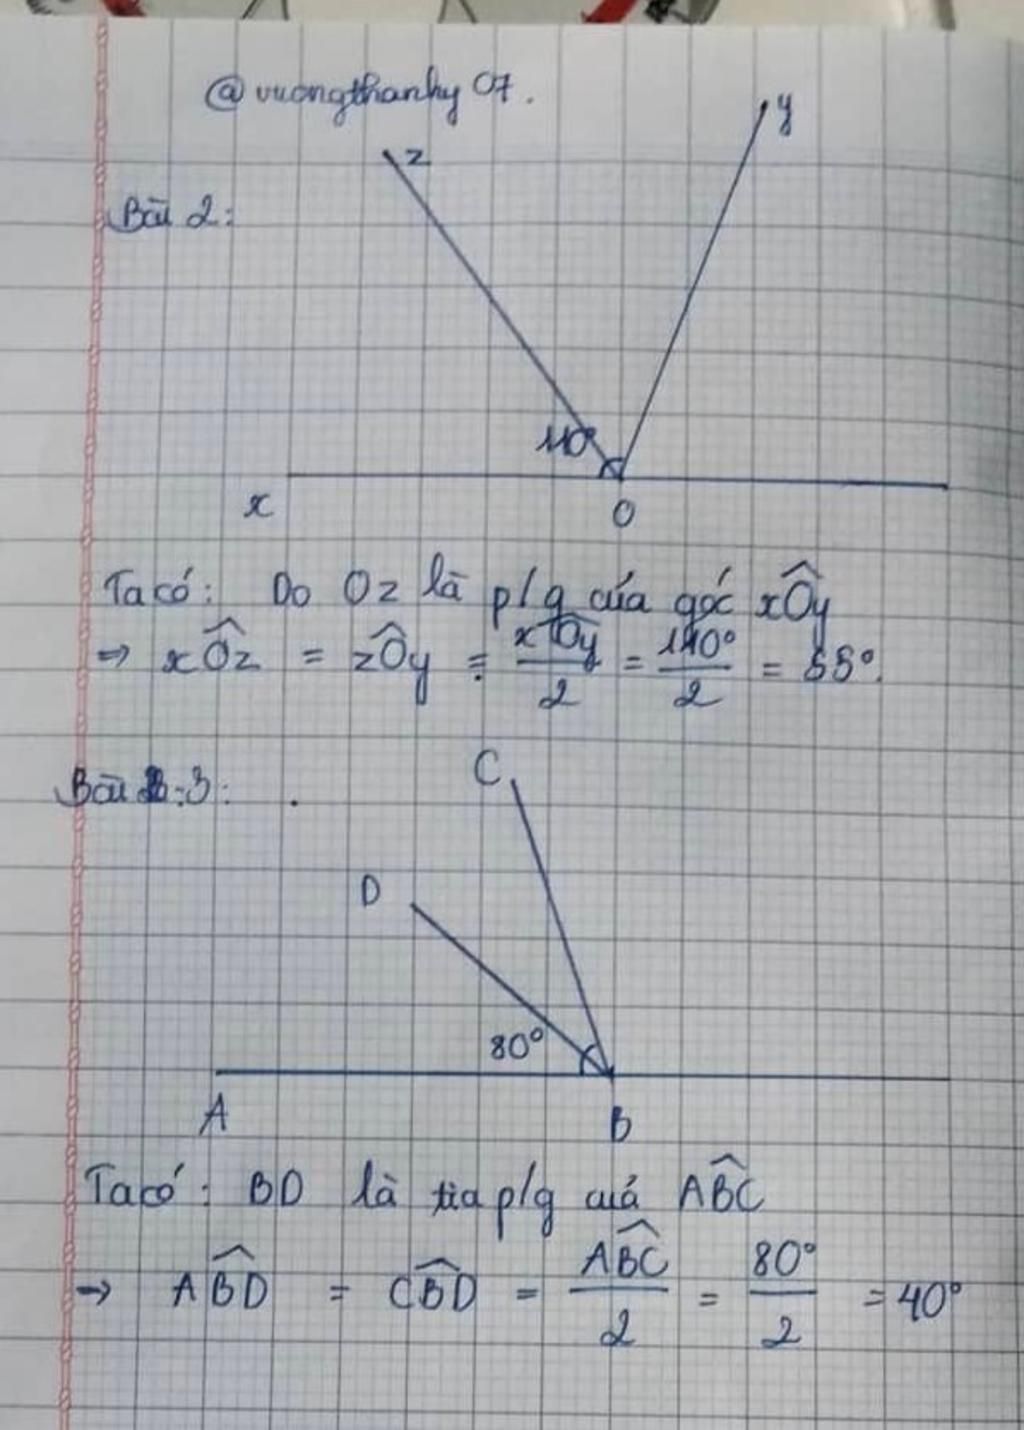 @vuongthanhy 07.
z
y
Bài 2:
110°
x
O
Ta có: Do Oz là p/g của góc xOy
=> xOz = zOy = xOy/2 = 110°/2 = 55°.
Bài 3:
C
D
80°
A
B
Ta có: BD là tia p/g của ABC
→ ABD = CBD = ABC/2 = 80°/2 = 40°